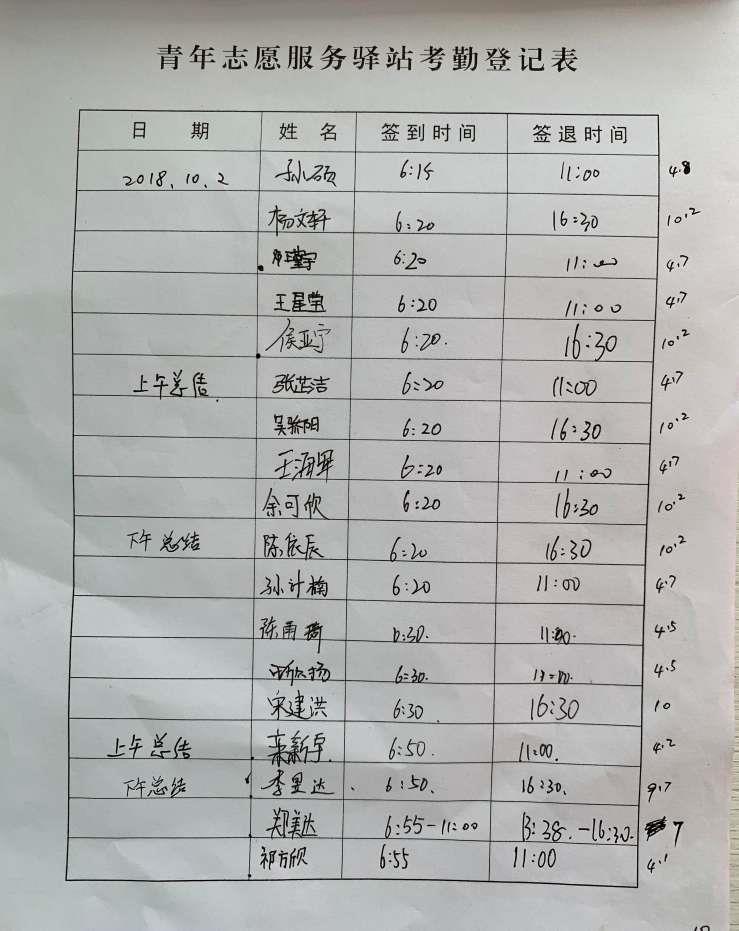 青年志愿服务驿站考勤登记表
日 期 姓 名 签到时间 签退时间
2018.10.2 孙硕 6:15 11:00 4.8
杨文轩 6:20 16:30 10.2
6:20 11:00 4.7
王星堂 6:20 11:00 4.7
侯亚宁 6:20. 16:30 10.2
上午总结. 张芸洁 6:20 11:00 4.7
吴骄阳 6:20 16:30 10.2
王海军 6:20 11:00 4.7
余可欣 6:20 16:30 10.2
下午总结 陈辰 6:20 16:30 10.2
孙计楠 6:20 11:00 4.7
陈雨琦 6:30. 11:00. 4.5
6:30. 11:00. 4.5
宋建洪 6:30. 16:30 10
上午总结 新宇. 6:50. 11:00. 4.2
下午总结 李昱达. 6:50. 16:30. 9.7
郑美达 6:55-11:00 13:38.-16:30. 7
祁方欣 6:55 11:00 4.1